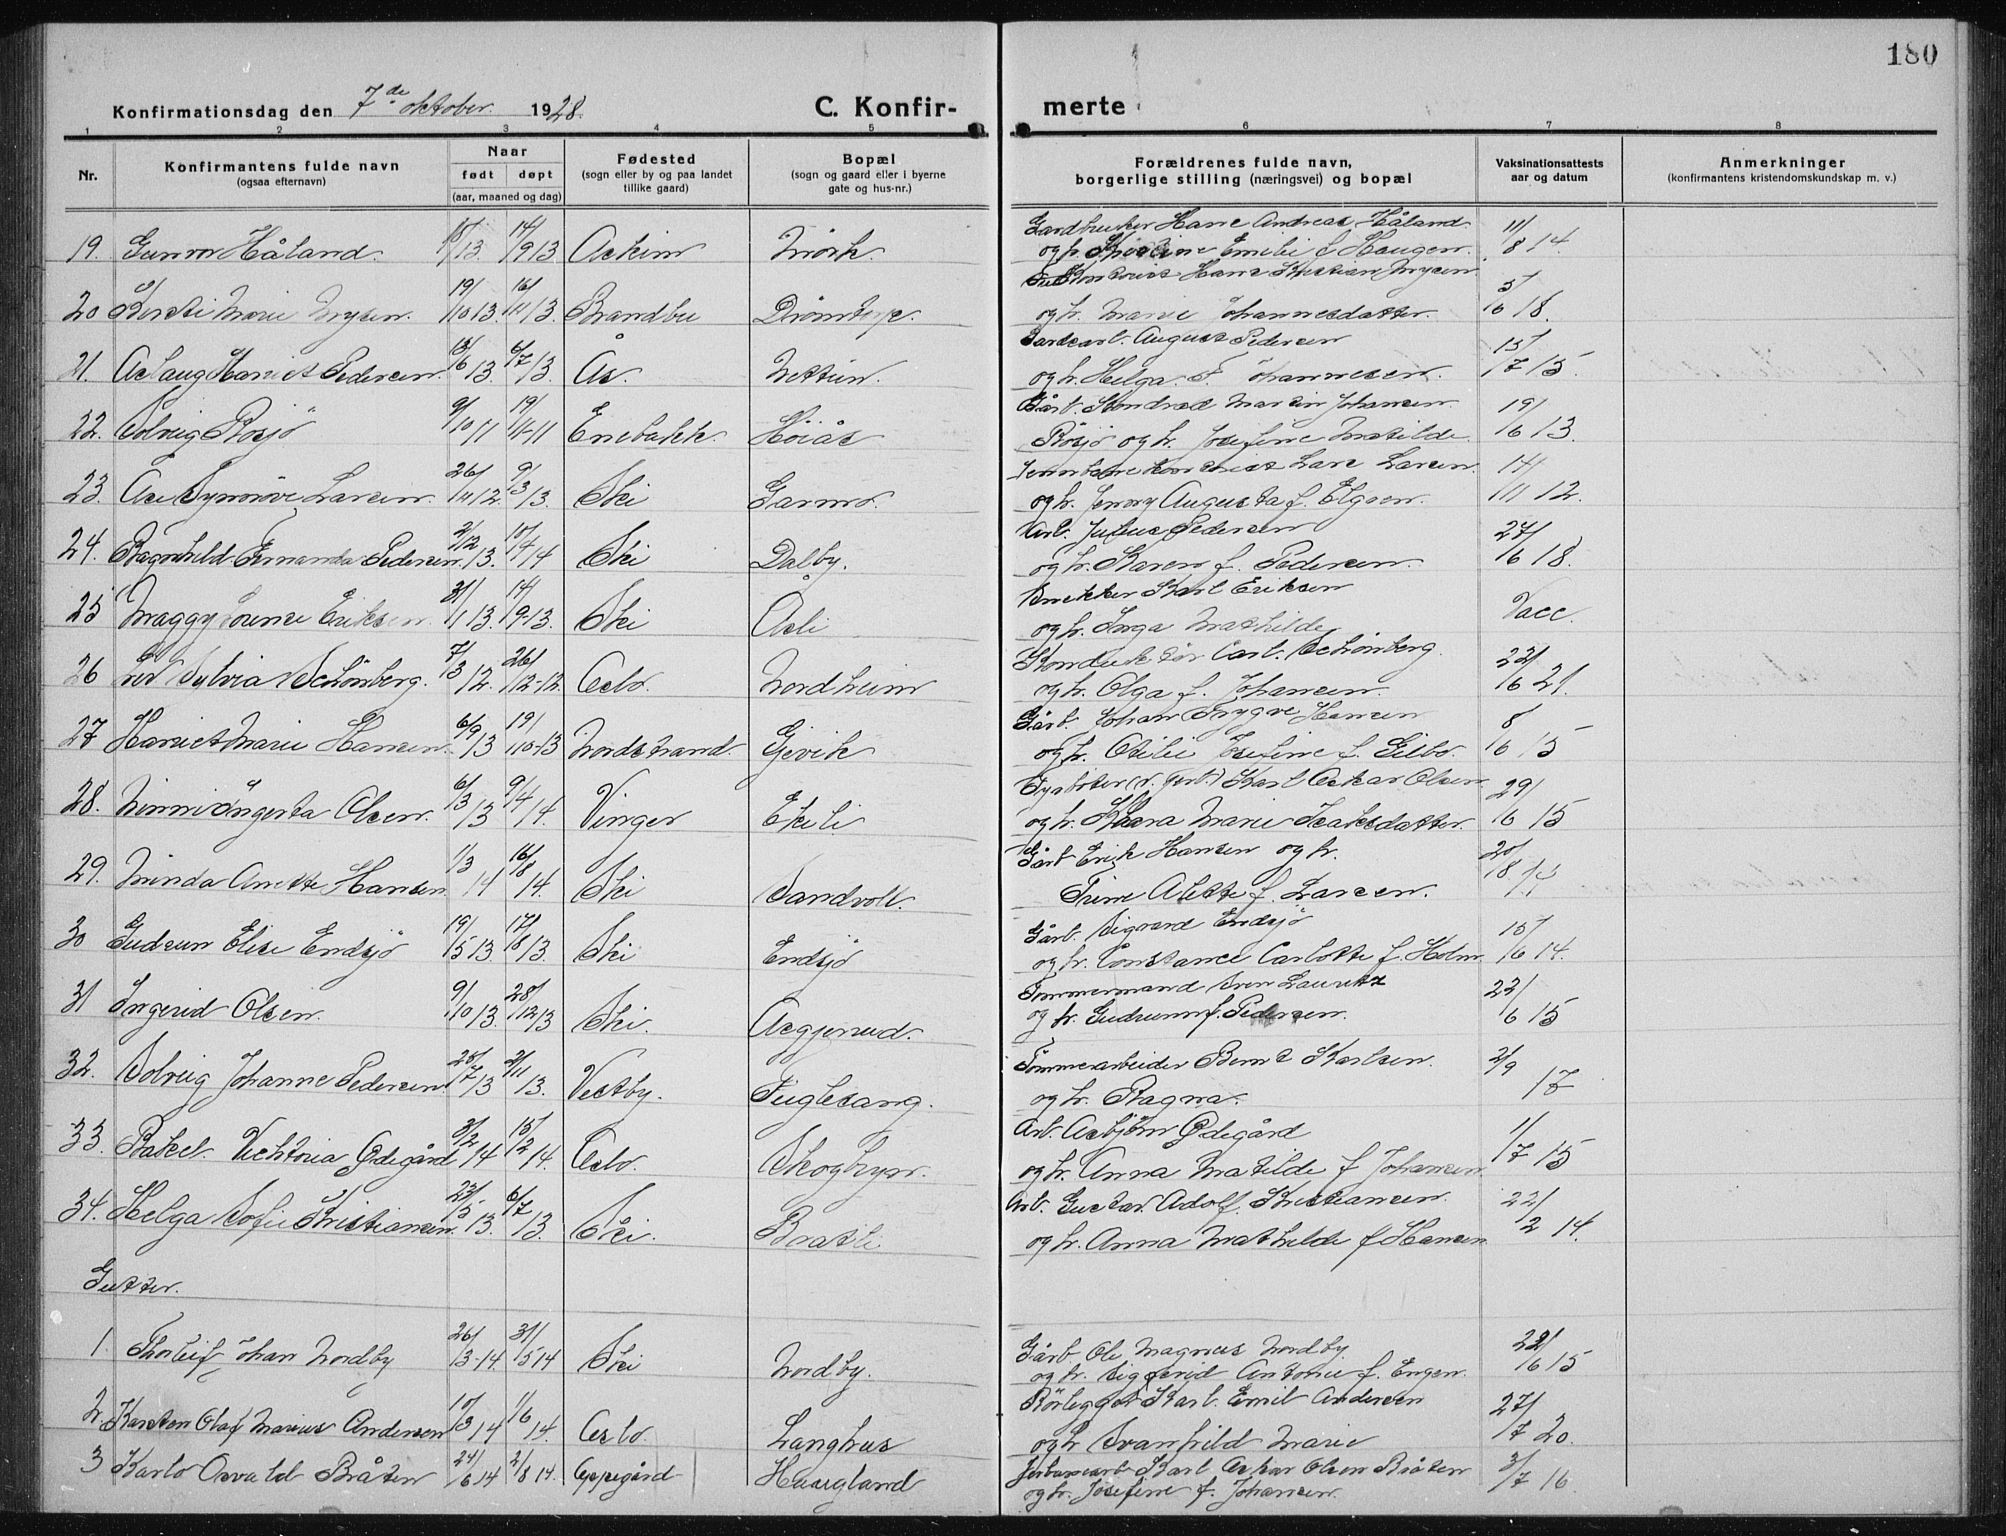 180
Konfirmationsdag den 7de oktober 1928. C. Konfir-
merte
1 2 3 4 5 6 7 8
Nr.
Konfirmantens fulde navn
(ogsaa efternavn)
Naar
født døpt
(aar, maaned og dag)
Fødested
(sogn eller by og paa landet
tillike gaard)
Bopæl
(sogn og gaard eller i byerne
gate og hus-nr.)
Forældrenes fulde navn,
borgerlige stilling (næringsvei) og bopæl
Vaksinationsattests
aar og datum
Anmerkninger
(konfirmantens kristendomskundskap m. v.)
19. Gunvor Håland. 13. 14/9 13 Askim Mörk. Gardbruker Hans Andreas Håland 11/8 14.
og h. Emilie f. Haugen
20 Kersti Marie Mysen. 19/10 13. 16/11 13. Brandbu Drömtorp. Hans Kristian Mysen 5/6 18.
og h. Marie Johannesdatter.
21. Aslaug Hariet Pedersen. 15/6 13. 6/7 13. Ås. Gardsarb. August Pedersen 15/7 15.
og h. Helga. F. Johannesen.
22. Solveig Rosjö 9/10 11 19/11-11 Enebakk. Höiås Gårb. Kondrad Martin Johansen 19/6 13.
Rösjö og h. Josefine Matilde
23. Åse Synnöve Larsen. 26/11 12. 9/3 13. Ski Garmo. Lars Larsen 14/11 12.
og h. Jenny Augusta f. Elgsen.
24. Ragnhild Fernanda Pedersen. 2/12 13. 10/4 14 Ski Dalby. Arb. Julius Pedersen 27/6 18.
og h. Karen f. Pedersen.
25 Maggy Lovise Eriksen 31/1 13. 14/9-13. Ski Åsli Snekker Karl Eriksen Vacc.
og h. Inga Mathilde
26 Liv Sylvia Schönberg. 7/3 12. 26/12-12. Oslo. Nordheim Konduktör Carl. Schönberg 22/6 21.
og h. Olga f. Johansen.
27 Hariet Marie Hansen. 6/9 13 19/10-13 Nordstrand. Gjevik Gårb. Johan Trygve Hansen 8/6 15
og h. Otilie Josefine f. Gilbo.
28. Ninni Ingerta Olsen. 6/3 13 9/4 14. Vinger Ekeli Karl Oskar Olsen 29/6 15
og h. Klara Marie Isaksdatter.
29. Minda Anette Hansen 1/3 14 16/8 14. Ski Sandvoll. Gårb Erik Hansen og h. 20/8
Trine Alette f. Larsen.
30 Gudrun Elise Endsjö 19/5 13. 17/8 13. Ski Endsjö Gårb. Sigvard Endsjö 15/6 14.
og h. Constance Carlotte f. Holm
31 Ingerid Olsen. 9/10 13. 28/12 13 Ski. Asgjerrud. Tömmermand Sven Lauritz 22/6 15
og h. Gudrun f. Pedersen.
32. Solveig Johanne Pedersen 25/7 13 2/11 13. Vestby. Fuglesang. Tömmerarbeider Bernt Karlsen. 2/9 17
og h. Ragna.
33. Rakel. Vicktoria Ødegård 3/2 14 15/2 14. Oslo. Skogbryn. Arb. Asbjörn Ødegård 1/7 15
og h. Anna Matilde f Johansen
34. Helga Sofie Kristiansen 23/5 13. 6/7 13. Ski. Bratli Arb. Gustav Adolf Kristiansen. 22/2 14.
og h. Anna Mathilde f Hansen
Gutter.
1. Thorleif Johan Nordby 26/3-14. 31/5 14 Ski Nordby. Gårb Ole Magnus Nordby 22/6 15
og h. Sigfrid Antonie f. Engen.
2. Karsten Olaf Marius Andersen 10/3 14 1/6 14. Oslo. Langhus Rörlegger Karl. Emil Andersen 27/7 20.
og h Svanhild Marie
3 Karlo Osvald Bråten 24/6 14 2/8 14. Oppegård Haugland Karl Oskar Olsen Bråten 3/7 16
og h. Josefine f. Johansen.